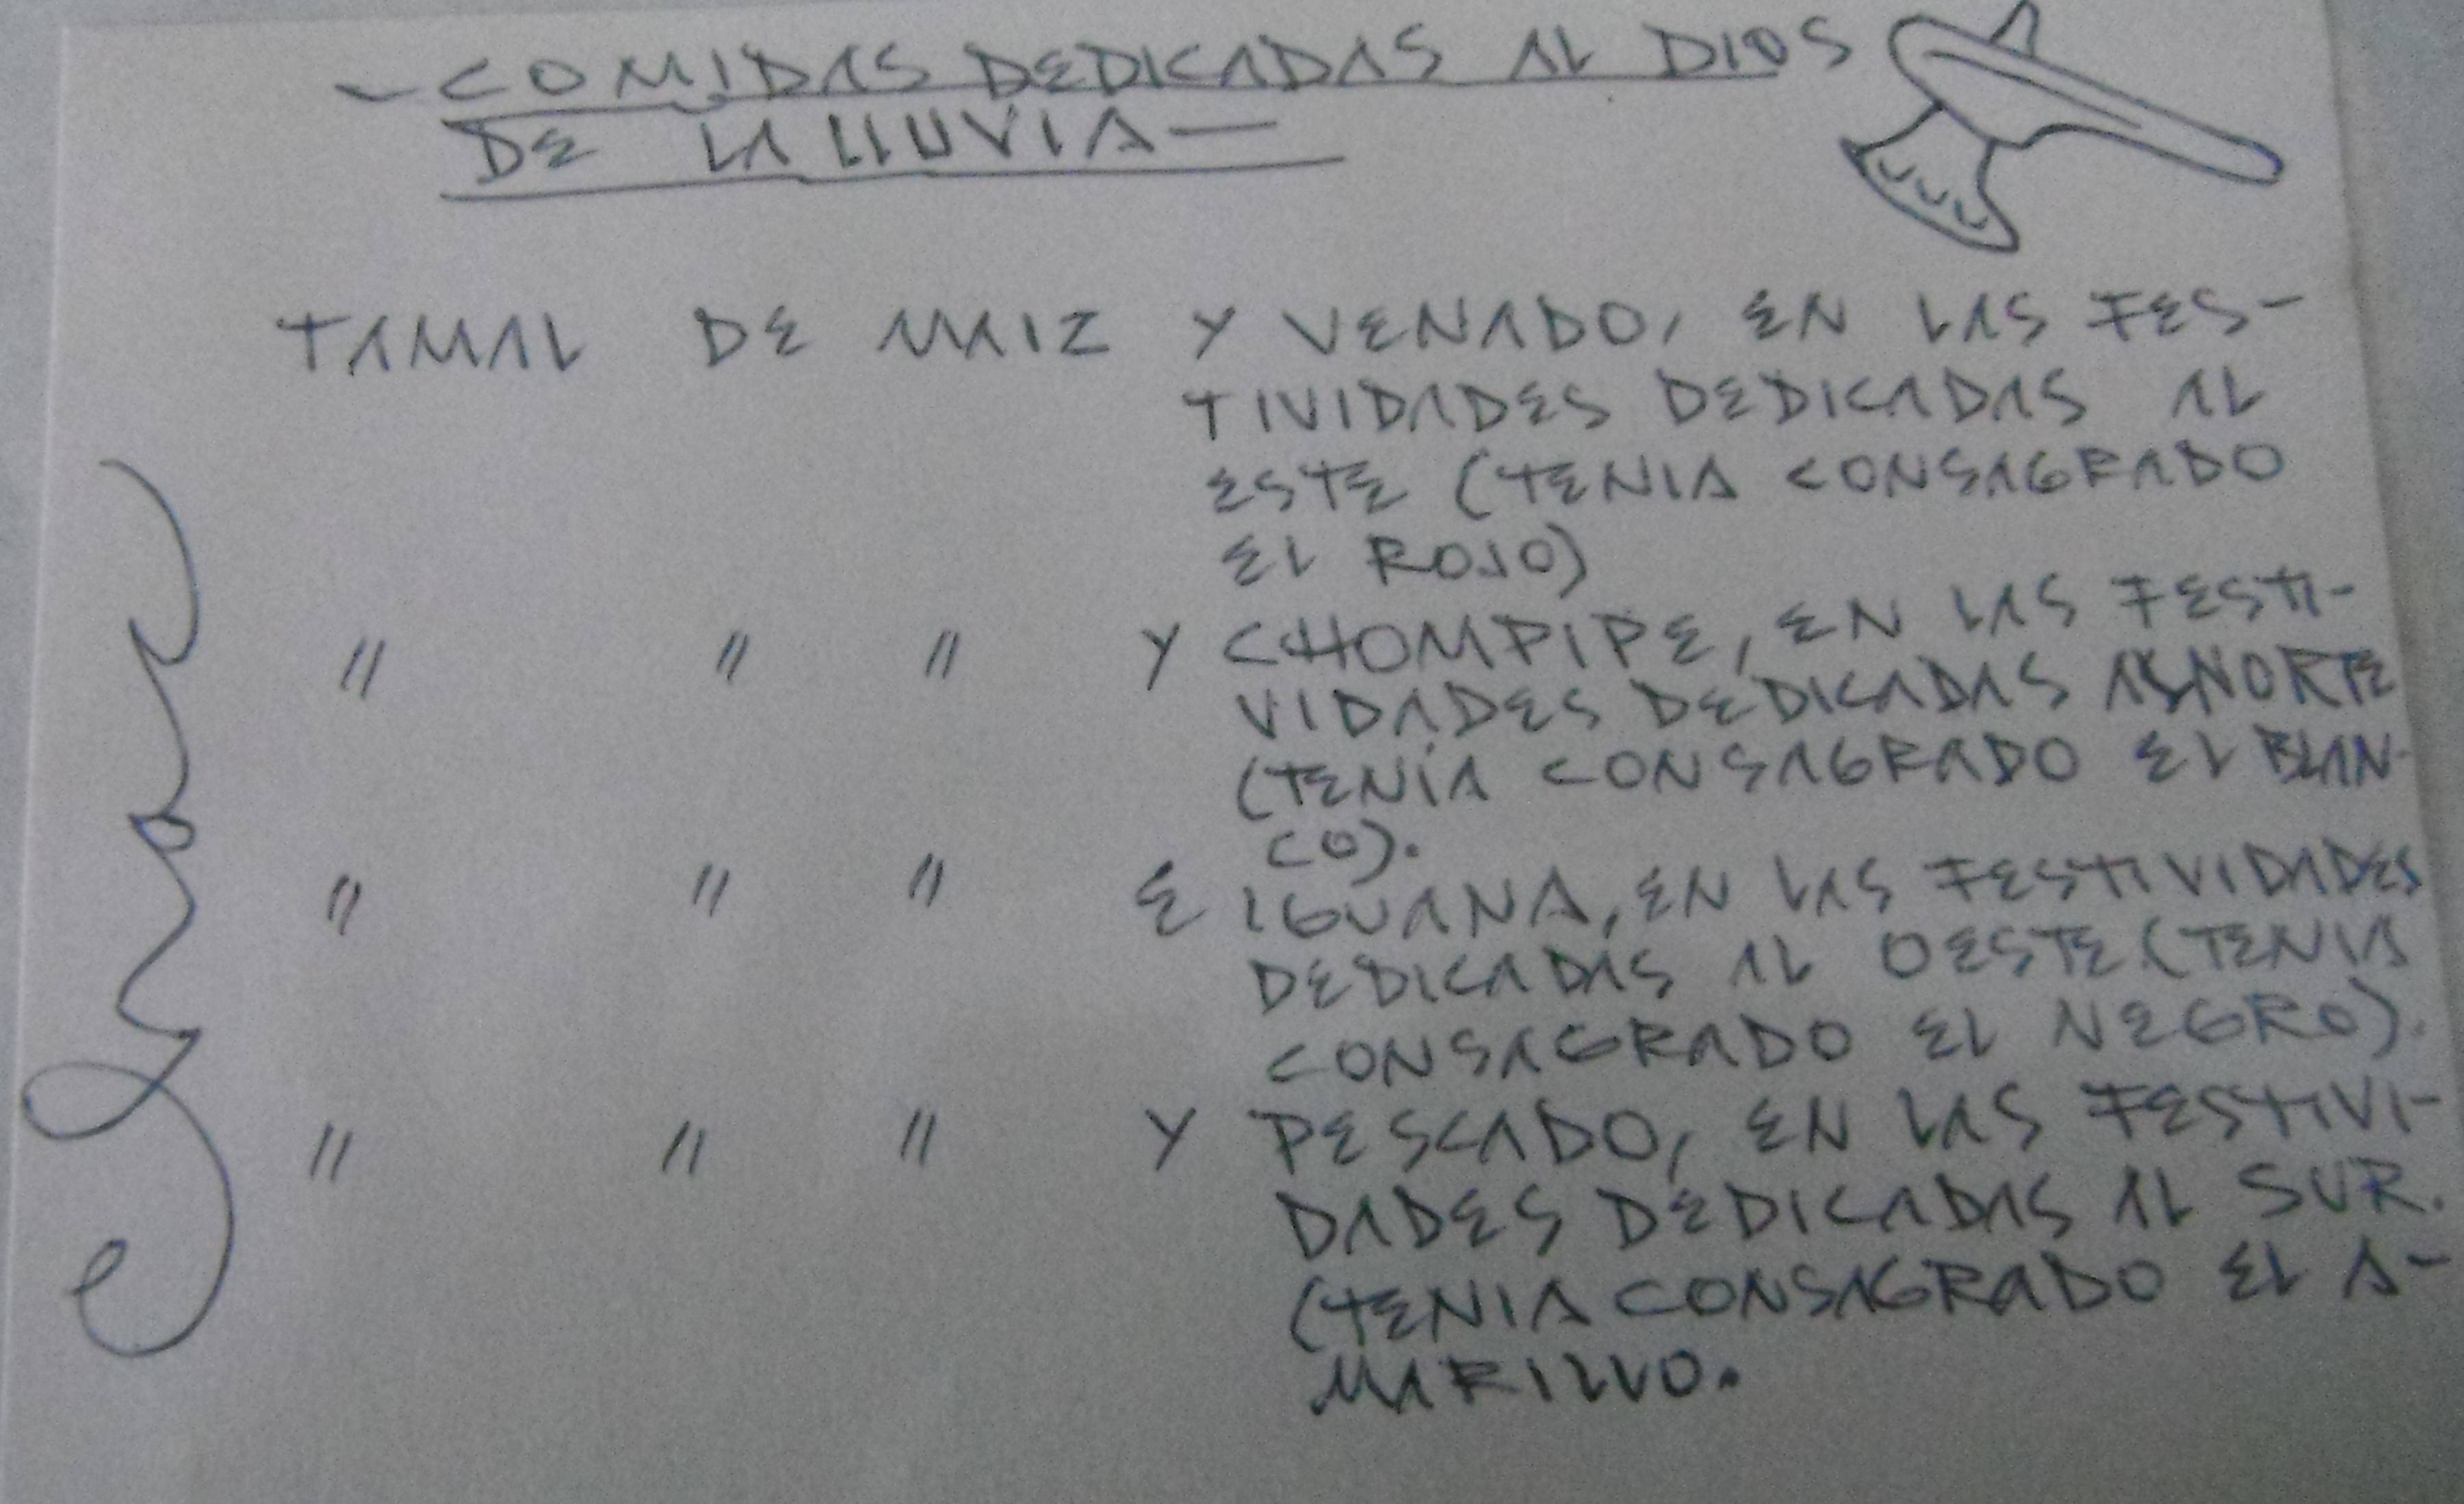 - COMIDAS DEDICADAS AL DIOS
DE LA LLUVIA -
TAMAL DE MAIZ Y VENADO, EN LAS FES-
TIVIDADES DEDICADAS AL
ESTE (TENIA CONSAGRADO
EL ROJO)
" " " Y CHOMPIPE, EN LAS FESTI-
VIDADES DEDICADAS AL NORTE
(TENÍA CONSAGRADO EL BLAN-
CO).
" " " E IGUANA, EN LAS FESTIVIDADES
DEDICADAS AL OESTE (TENIA
CONSAGRADO EL NEGRO).
" " " Y PESCADO, EN LAS FESTIVI-
DADES DEDICADAS AL SUR.
(TENIA CONSAGRADO EL A-
MARILLO.